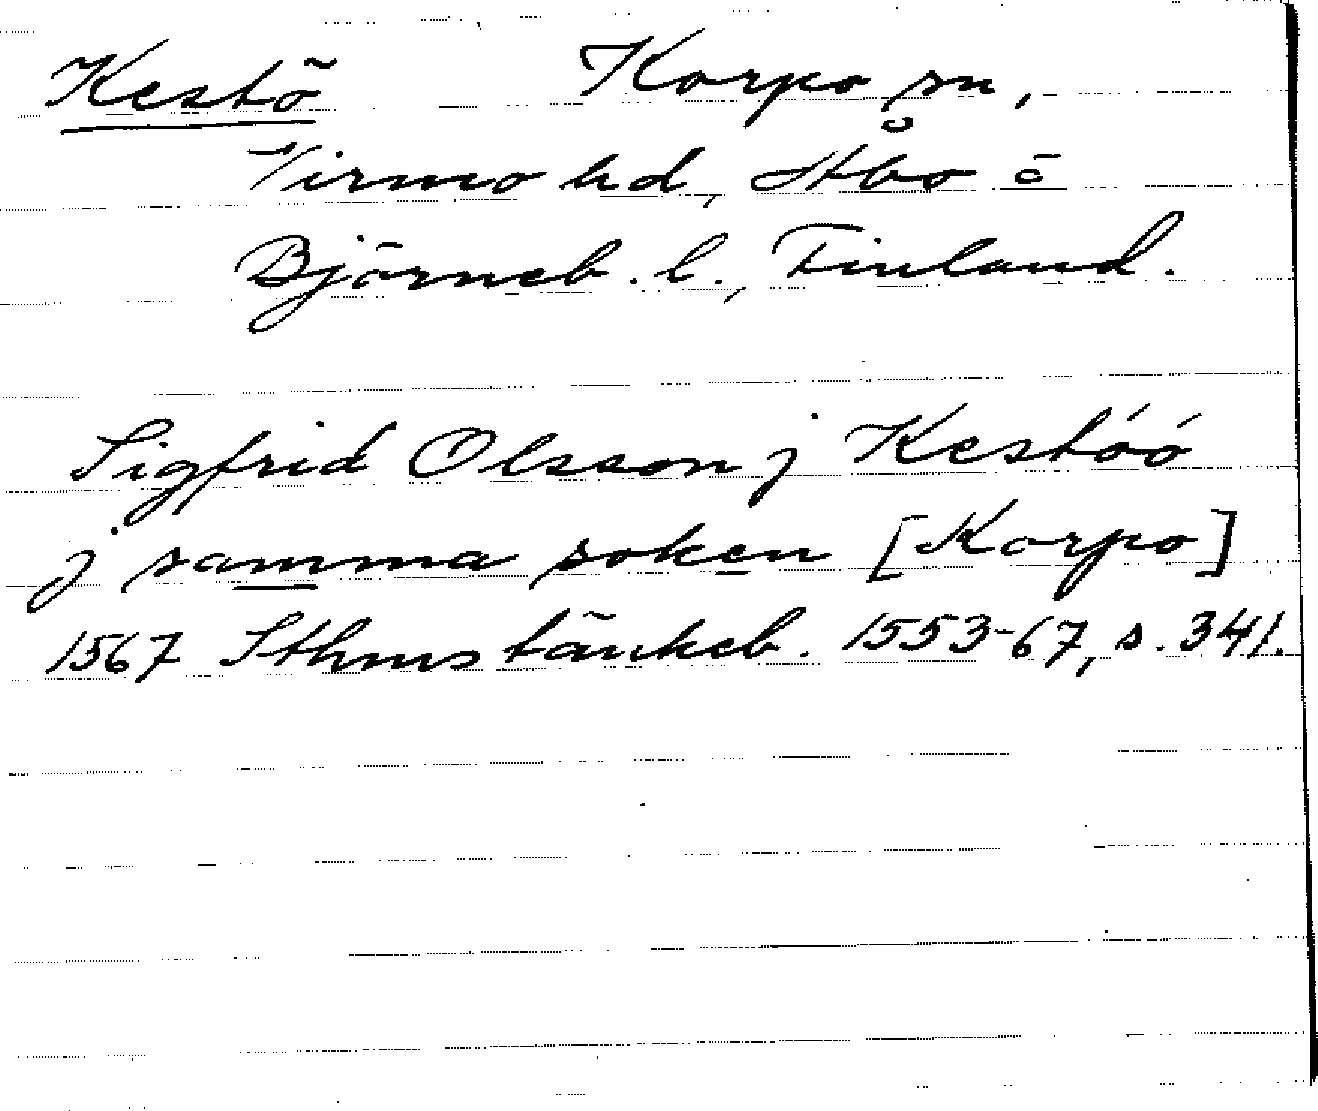 Kestö Korpo sn,
Virmo hd, Åbo o
Björneb. l., Finland.
Sigfrid Olsson j Kestóó
j samma soken [Korpo]
1567 Sthms tänkeb. 1553-67, s. 341.